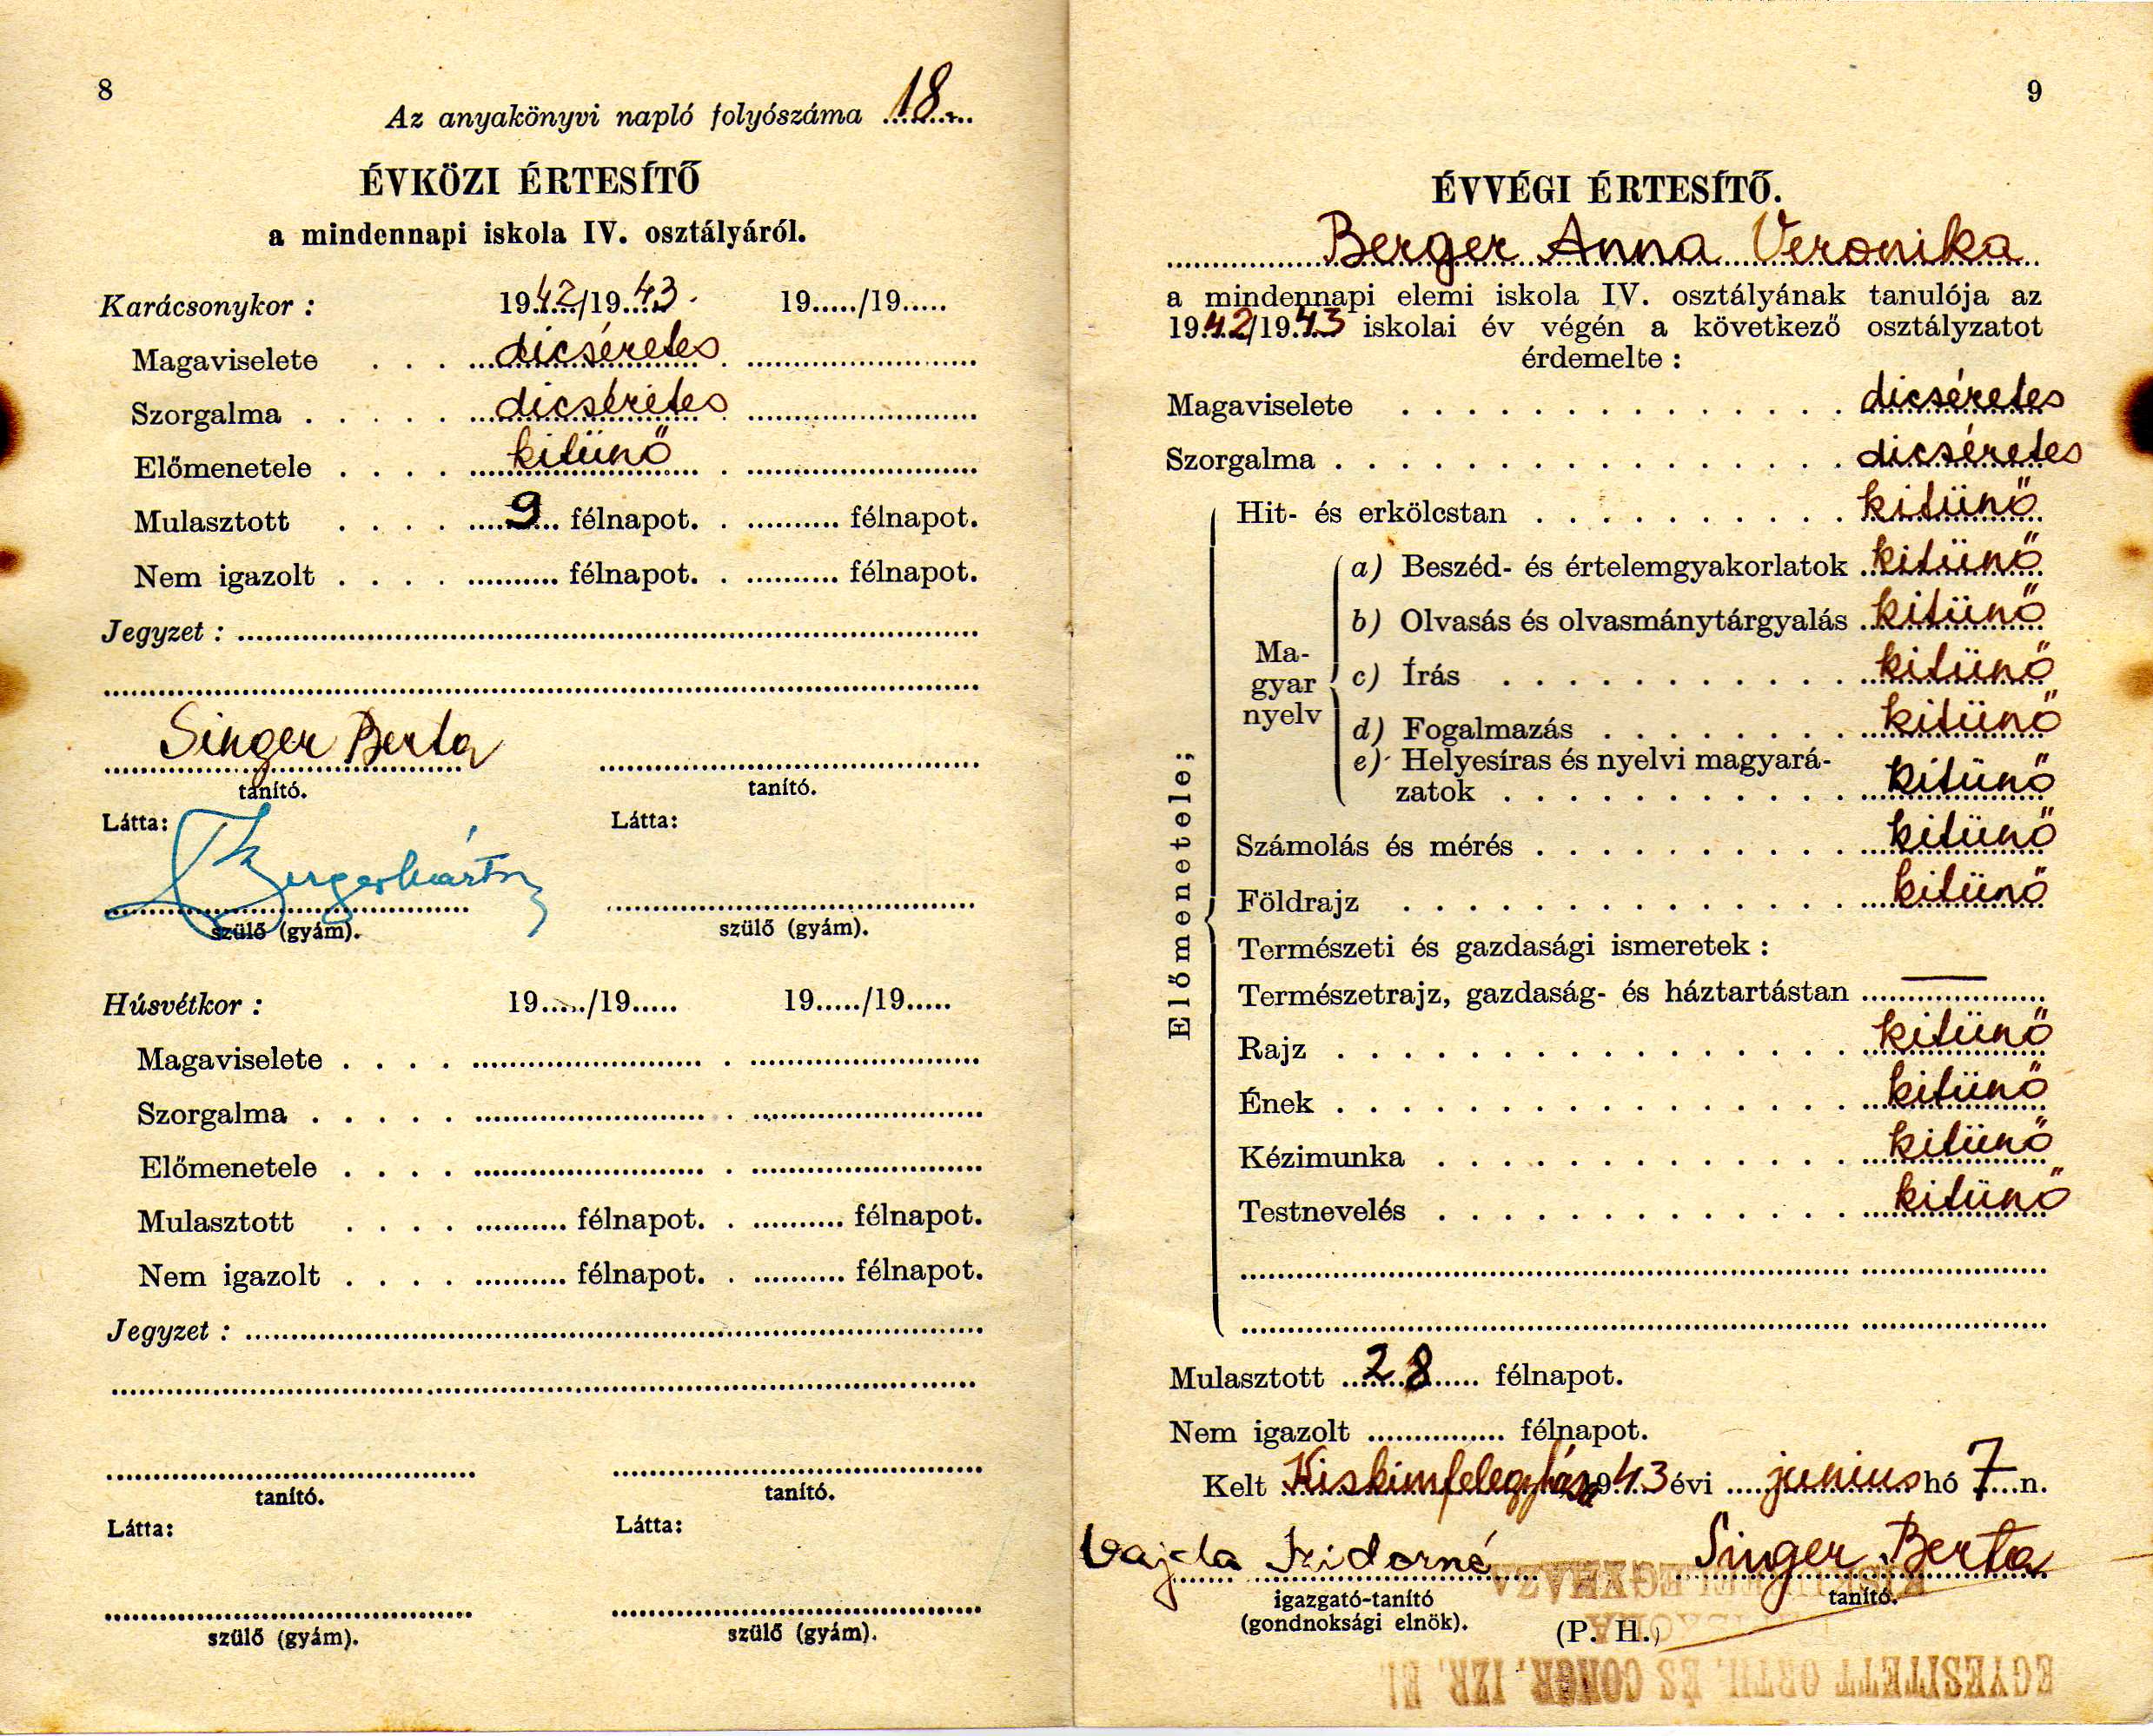 8
Az anyakönyvi napló folyószáma 18
ÉVKÖZI ÉRTESÍTŐ
a mindennapi iskola IV. osztályáról.
Karácsonykor : 1942/1943. 19...../19.....
Magaviselete . . . dicséretes
Szorgalma . . . . . dicséretes
Előmenetele . . . . kitünő
Mulasztott . . . . 9 félnapot. . .......... félnapot.
Nem igazolt . . . . .......... félnapot. . .......... félnapot.
Jegyzet :
Singer Berta
tanító. tanító.
Látta: Látta:
szülő (gyám). szülő (gyám).
Húsvétkor : 19...../19..... 19...../19.....
Magaviselete . . . .
Szorgalma . . . . .
Előmenetele . . . .
Mulasztott . . . . .......... félnapot. . .......... félnapot.
Nem igazolt . . . . .......... félnapot. . .......... félnapot.
Jegyzet :
tanító. tanító.
Látta: Látta:
szülő (gyám). szülő (gyám).
9
ÉVVÉGI ÉRTESÍTŐ.
Berger Anna Veronika
a mindennapi elemi iskola IV. osztályának tanulója az
1942/1943 iskolai év végén a következő osztályzatot
érdemelte :
Magaviselete dicséretes
Szorgalma dicséretes
Előmenetele;
Hit- és erkölcstan kitünő
Magyar nyelv
a) Beszéd- és értelemgyakorlatok kitünő
b) Olvasás és olvasmánytárgyalás kitünő
c) Írás kitünő
d) Fogalmazás kitünő
e) Helyesíras és nyelvi magyará-
zatok kitünő
Számolás és mérés kitünő
Földrajz kitünő
Természeti és gazdasági ismeretek :
Természetrajz, gazdaság- és háztartástan —
Rajz kitünő
Ének kitünő
Kézimunka kitünő
Testnevelés kitünő
Mulasztott 28 félnapot.
Nem igazolt ............... félnapot.
Kelt Kiskunfelegyháza 1943 évi junius hó 7 n.
Vajda Izidorné Singer Berta
igazgató-tanító tanító.
(gondnoksági elnök). (P. H.)
EGYESITETT ORTH. ÉS CONGR. IZR. EL